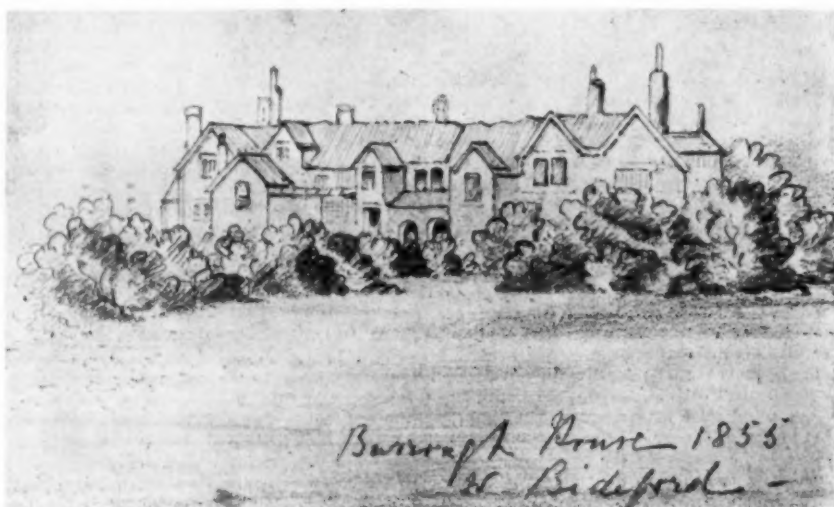 Burrough House 1855
nr Bideford -